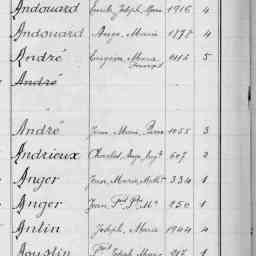 Andouard Emile Joseph Marie 1916 4
Andouard Ange Marie 1878 4
André Eugène Marie 5
André
André Jean Marie Pierre 1055 3
Andrieux Charles Ange 607 2
Anger Jean Marie Math. 334 1
Anger Jean 150 1
Antin Joseph Marie 1944 4
Aoustin Joseph Marie 1